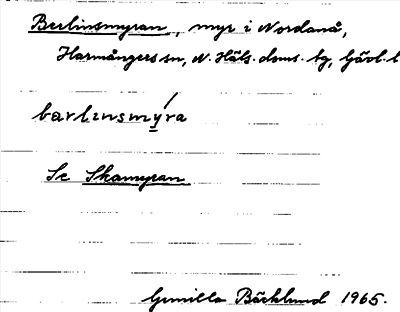 Berlinsmyran, myr i Nordanå,
Harmångers sn, N. Häls. doms. tg, Gävl. l
barlinsmýra
Se Skamyran
Gunilla Bäcklund 1965.